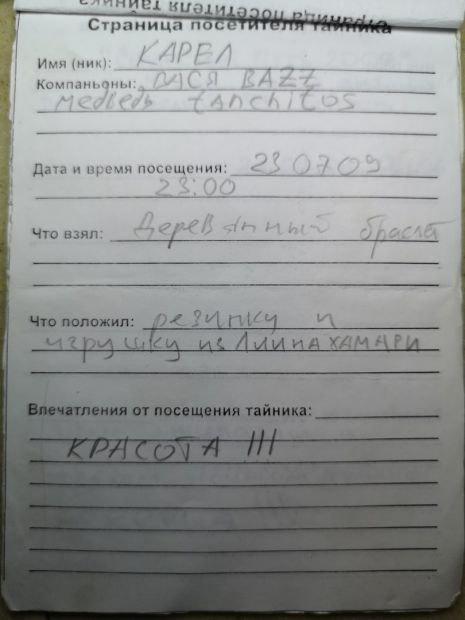 Страница посетителя тайника
Страница посетителя тайника
Имя (ник): КАРЕЛ
Компаньоны: ВАСЯ BAZZ
медведь tANCHITOS
Дата и время посещения: 23 07 09
23:00
Что взял: Деревянный браслет
Что положил: резинку и
игрушку из Лиинахамари
Впечатления от посещения тайника:
КРАСОТА !!!